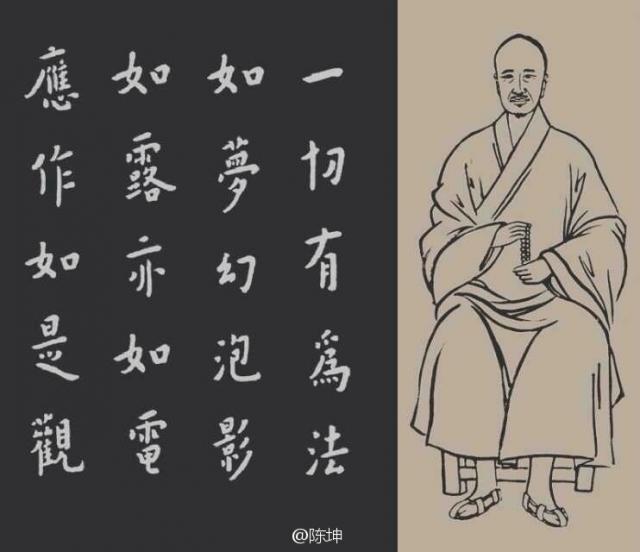 一切有爲法
如夢幻泡影
如露亦如電
應作如是觀
@陈坤